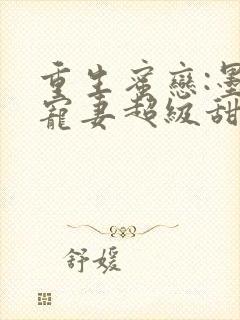 重生蜜戀:墨
寵妻超級甜
舒媛